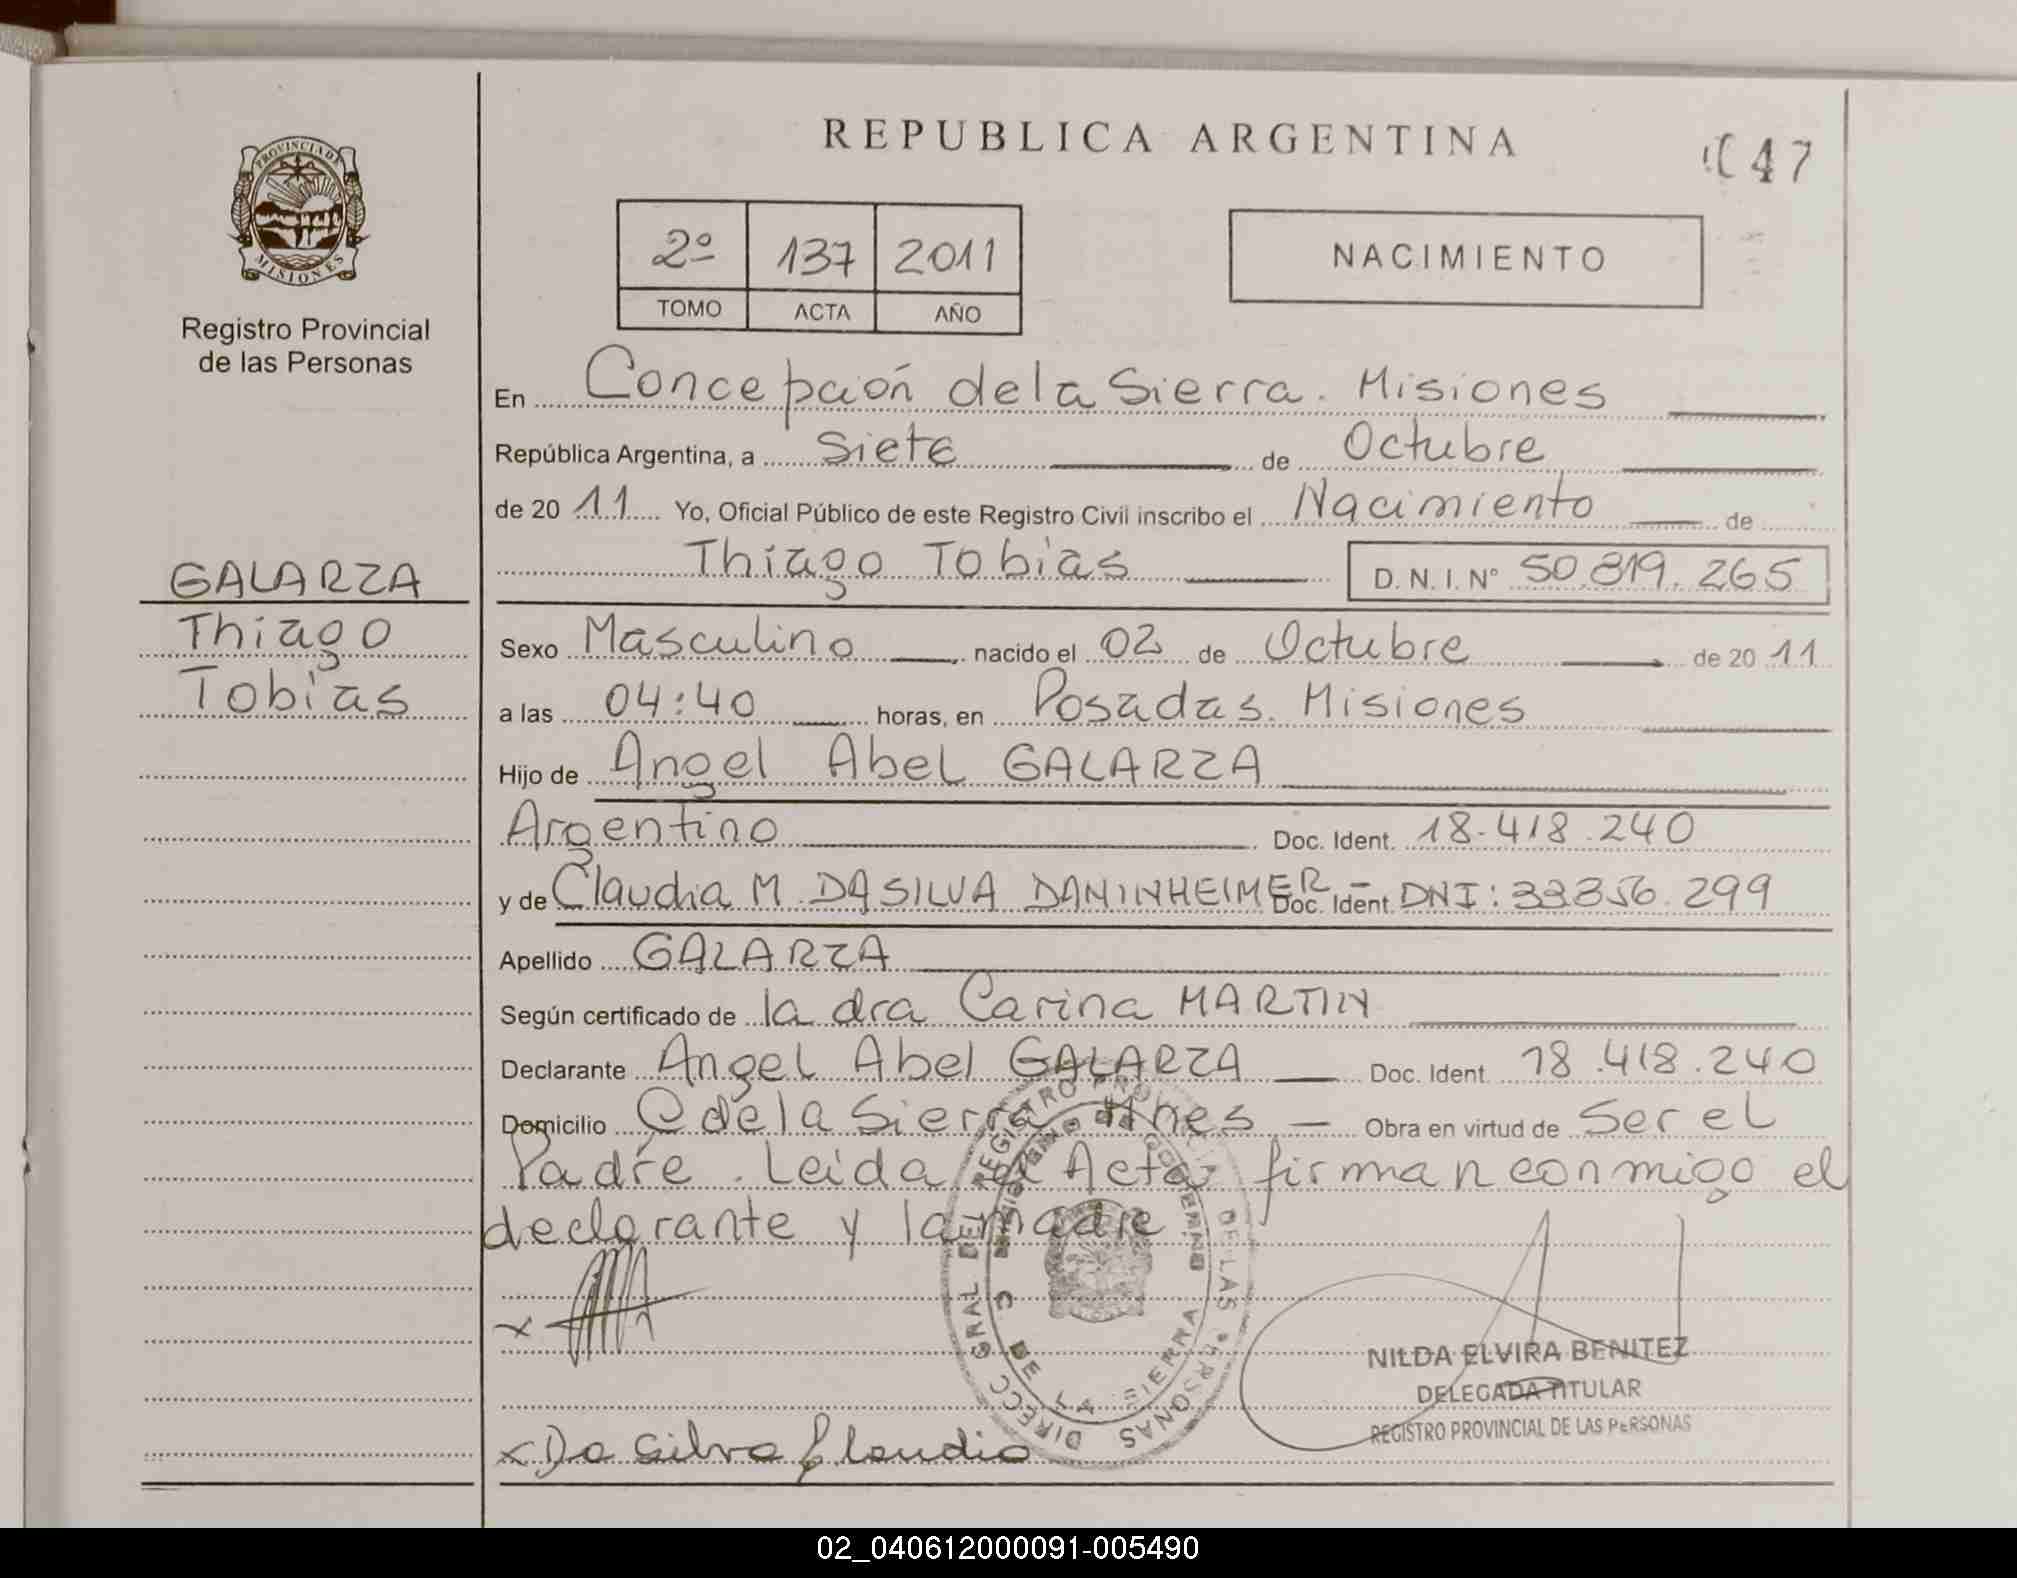 PROVINCIA DE
MISIONES
Registro Provincial
de las Personas
GALARZA
Thiago
Tobias
REPUBLICA ARGENTINA
47
2º 137 2011
TOMO ACTA AÑO
NACIMIENTO
En Concepción de la Sierra. Misiones
República Argentina, a Siete de Octubre
de 2011 Yo, Oficial Público de este Registro Civil inscribo el Nacimiento de
Thiago Tobias D.N.I. N° 50.819.265
Sexo Masculino, nacido el 02 de Octubre de 2011
a las 04:40 horas, en Posadas. Misiones
Hijo de Angel Abel GALARZA
Argentino Doc. Ident. 18.418.240
y de Claudia M. DA SILVA DANINHEIMER - Doc. Ident. DNI: 33.856.299
Apellido GALARZA
Según certificado de la dra Carina MARTIN
Declarante Angel Abel GALARZA Doc. Ident. 18.418.240
Domicilio C de la Sierra Mnes - Obra en virtud de Ser el
Padre. Leida el Acta, firman conmigo el
declarante y la madre
DIRECC GRAL DEL REGISTRO PROVINCIAL DE LAS PERSONAS
MINISTERIO DE GOBIERNO
C DE LA SIERRA
x
x Da Silva Claudia
NILDA ELVIRA BENITEZ
DELEGADA TITULAR
REGISTRO PROVINCIAL DE LAS PERSONAS
02_040612000091-005490